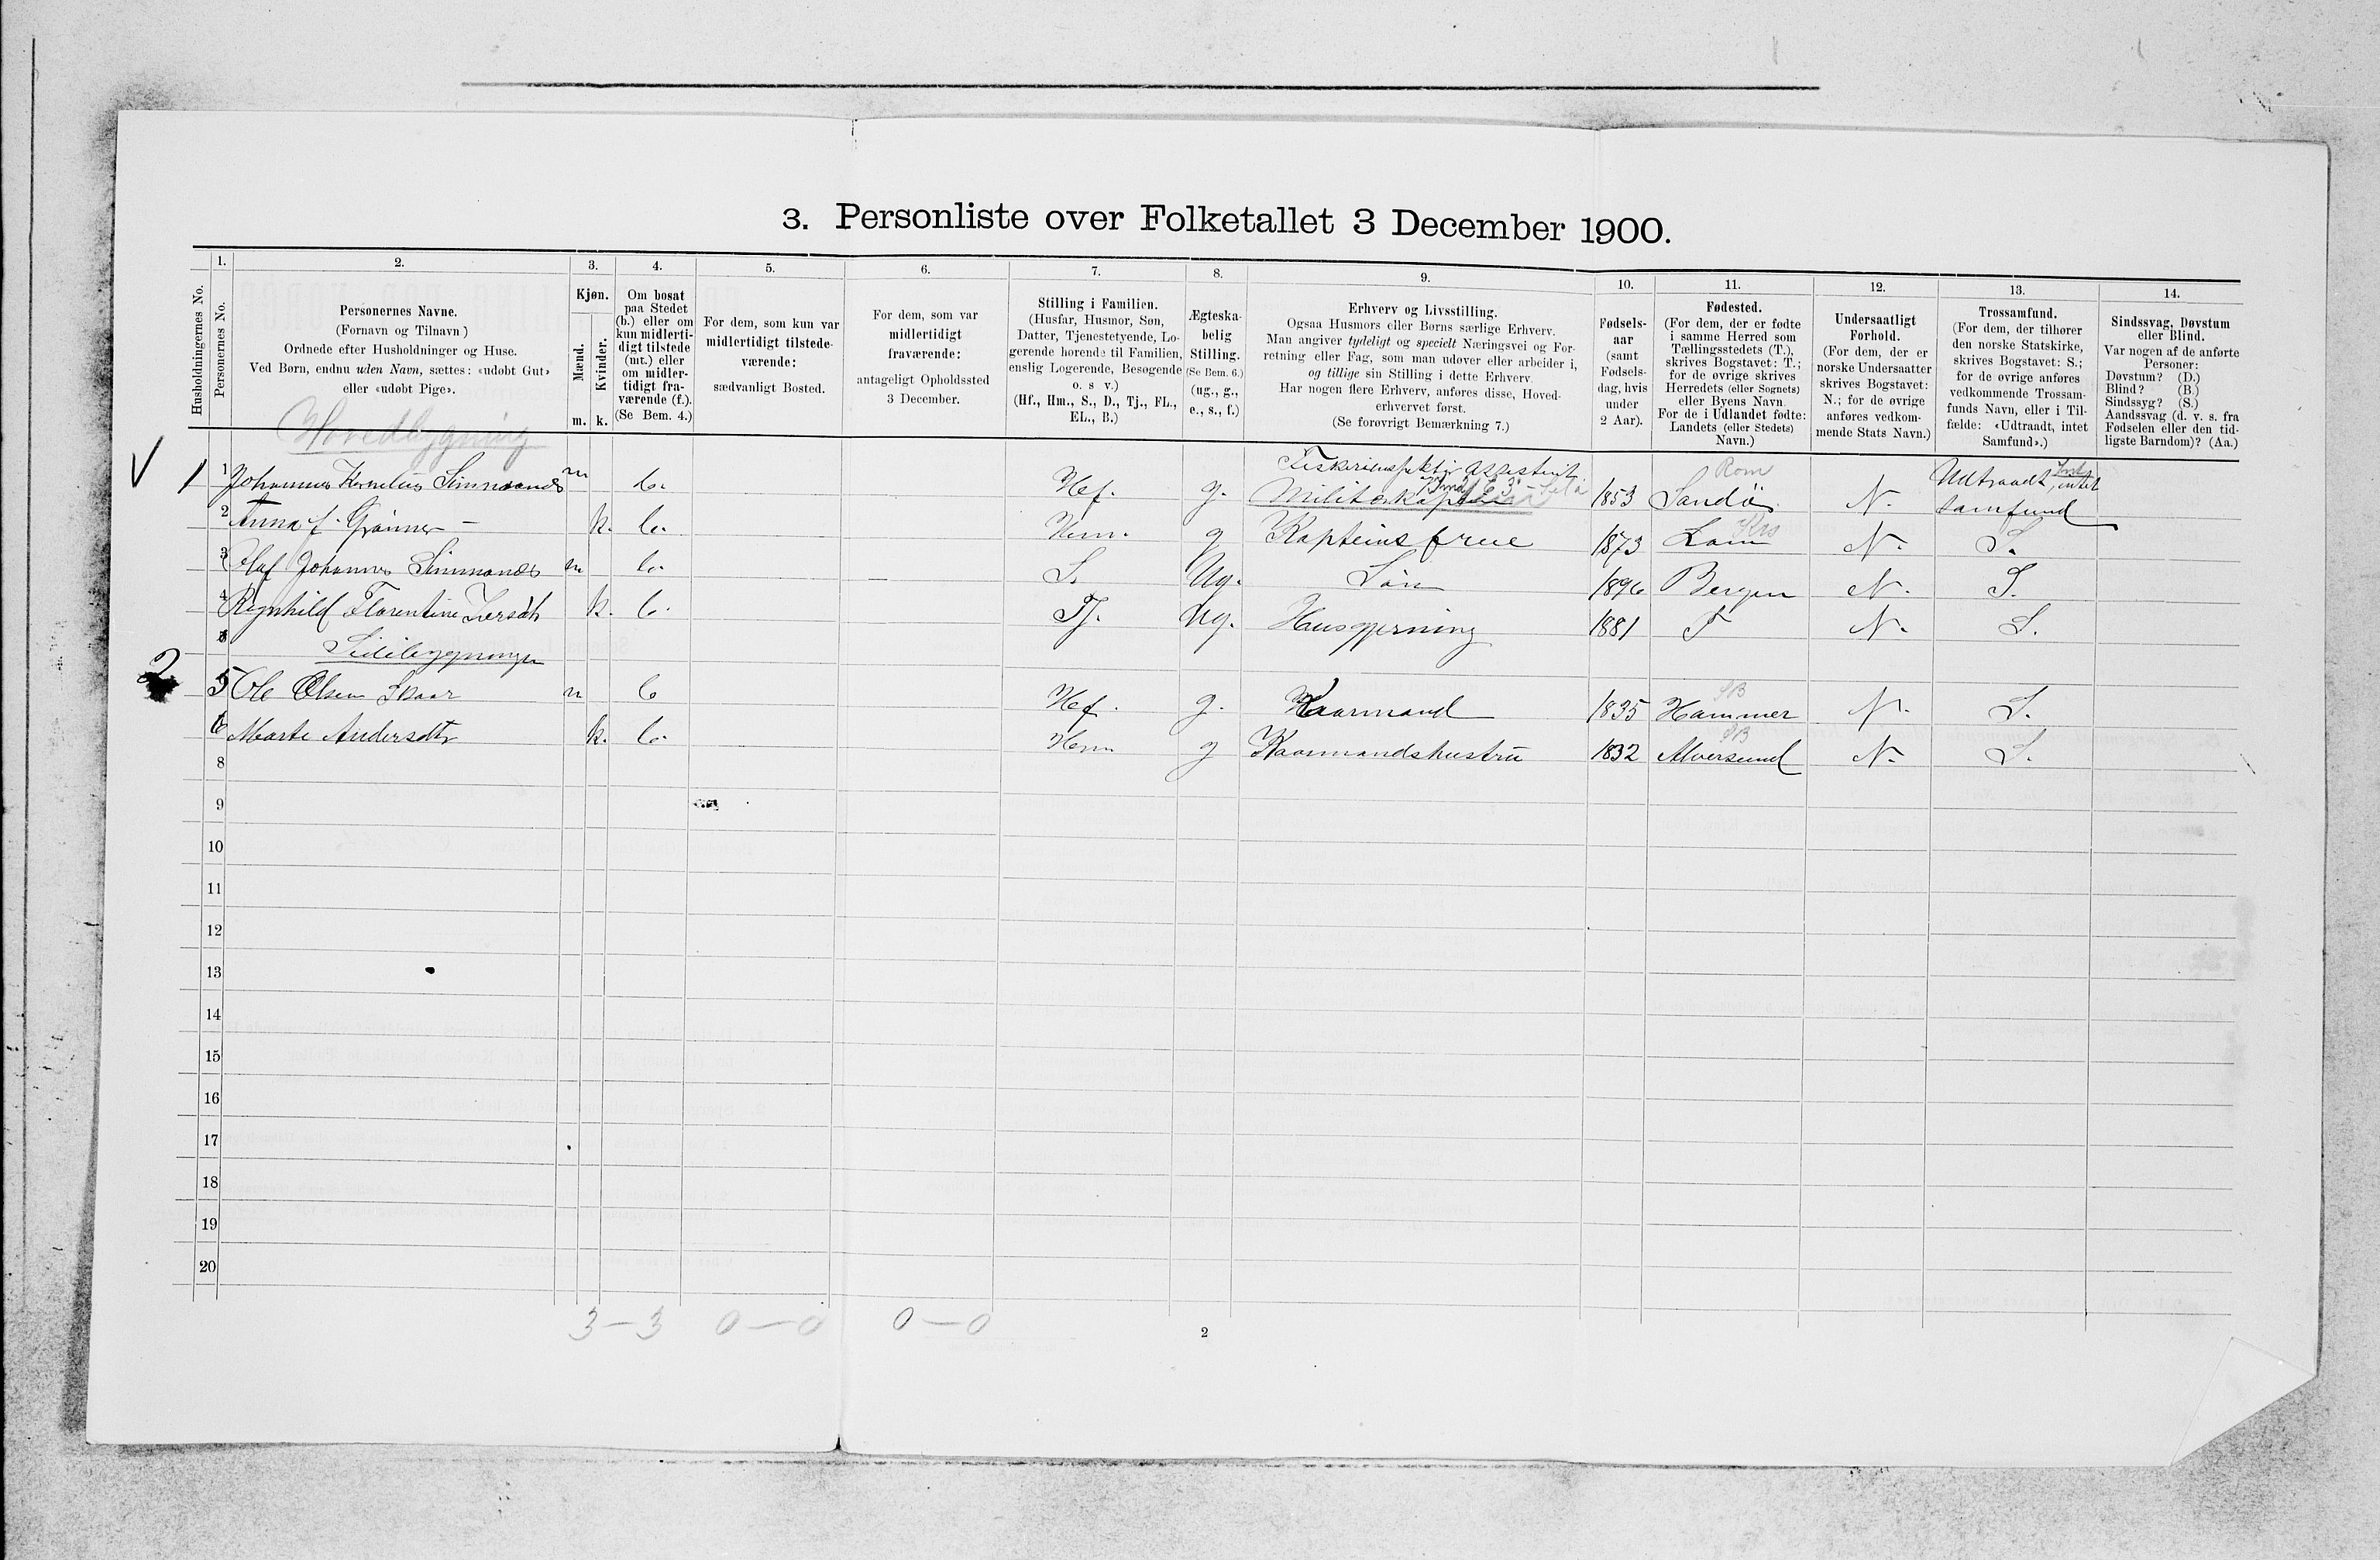 3. Personliste over Folketallet 3 December 1900.
1. 2. 3. 4. 5. 6. 7. 8. 9. 10. 11. 12. 13. 14.
Husholdningernes No.
Personernes No.
Personernes Navne.
(Fornavn og Tilnavn)
Ordnede efter Husholdninger og Huse.
Ved Børn, endnu uden Navn, sættes: «udøbt Gut»
eller «udøbt Pige».
Kjøn.
Mænd.
Kvinder.
m. k.
Om bosat
paa Stedet
(b.) eller om
kun midlerti-
digt tilstede
(mt.) eller
om midler-
tidigt fra-
værende (f.).
(Se Bem. 4.)
For dem, som kun var
midlertidigt tilstede-
værende:
sædvanligt Bosted.
For dem, som var
midlertidigt
fraværende:
antageligt Opholdssted
3 December.
Stilling i Familien.
(Husfar, Husmor, Søn,
Datter, Tjenestetyende, Lo-
gerende hørende til Familien,
enslig Logerende, Besøgende
o. s v.)
(Hf., Hm., S., D., Tj., FL.,
EL., B.)
Ægteska-
belig
Stilling.
(Se Bem. 6.)
(ug., g.,
e., s., f.)
Erhverv og Livsstilling.
Ogsaa Husmors eller Børns særlige Erhverv.
Man angiver tydeligt og specielt Næringsvei og For-
retning eller Fag, som man udøver eller arbeider i,
og tillige sin Stilling i dette Erhverv.
Har nogen flere Erhverv, anføres disse, Hoved-
erhvervet først.
(Se forøvrigt Bemærkning 7.)
Fødsels-
aar
(samt
Fødsels-
dag, hvis
under
2 Aar).
Fødested.
(For dem, der er fødte
i samme Herred som
Tællingsstedets (T.),
skrives Bogstavet: T.;
for de øvrige skrives
Herredets (eller Sognets)
eller Byens Navn.
For de i Udlandet fødte:
Landets (eller Stedets)
Navn.)
Undersaatligt
Forhold.
(For dem, der er
norske Undersaatter
skrives Bogstavet:
N.; for de øvrige
anføres vedkom-
mende Stats Navn.)
Trossamfund.
(For dem, der tilhører
den norske Statskirke,
skrives Bogstavet: S.;
for de øvrige anføres
vedkommende Trossam-
funds Navn, eller i Til-
fælde: «Udtraadt, intet
Samfund».)
Sindssvag, Døvstum
eller Blind.
Var nogen af de anførte
Personer:
Døvstum? (D.)
Blind? (B.)
Sindssyg? (S.)
Aandssvag (d. v. s. fra
Fødselen eller den tid-
ligste Barndom)? (Aa.)
Hovedbygning
Fiskeriinspektør assistent Rom
V 1 1 Johannes Kornelius Simmones m b. Hf. g. Militærkaptein 1853 Sandö N. Udtraadt, intet
samfund
2 Anna f. Grönner — k. b. Hm. g Kapteins frue 1873 Lom N. S.
3 Olaf Johannes Simmones m b. S. Ug. Sön 1896 Bergen N. S.
4 Ragnhild Florentine k. b. Tj. Ug. Husgjerning 1881 T N. S.
Sidebygningen
2 5 Ole Olsen Skaar m b Hf. g. Kaarmand 1835 Hammer N. S.
6 Marte Andersdtr k. b. Hm g Kaarmandshustru 1832 Alversund N. S.
8
9
10
11
12
13
14
15
16
17
18
19
20
3 — 3 0 — 0 0 — 0
2